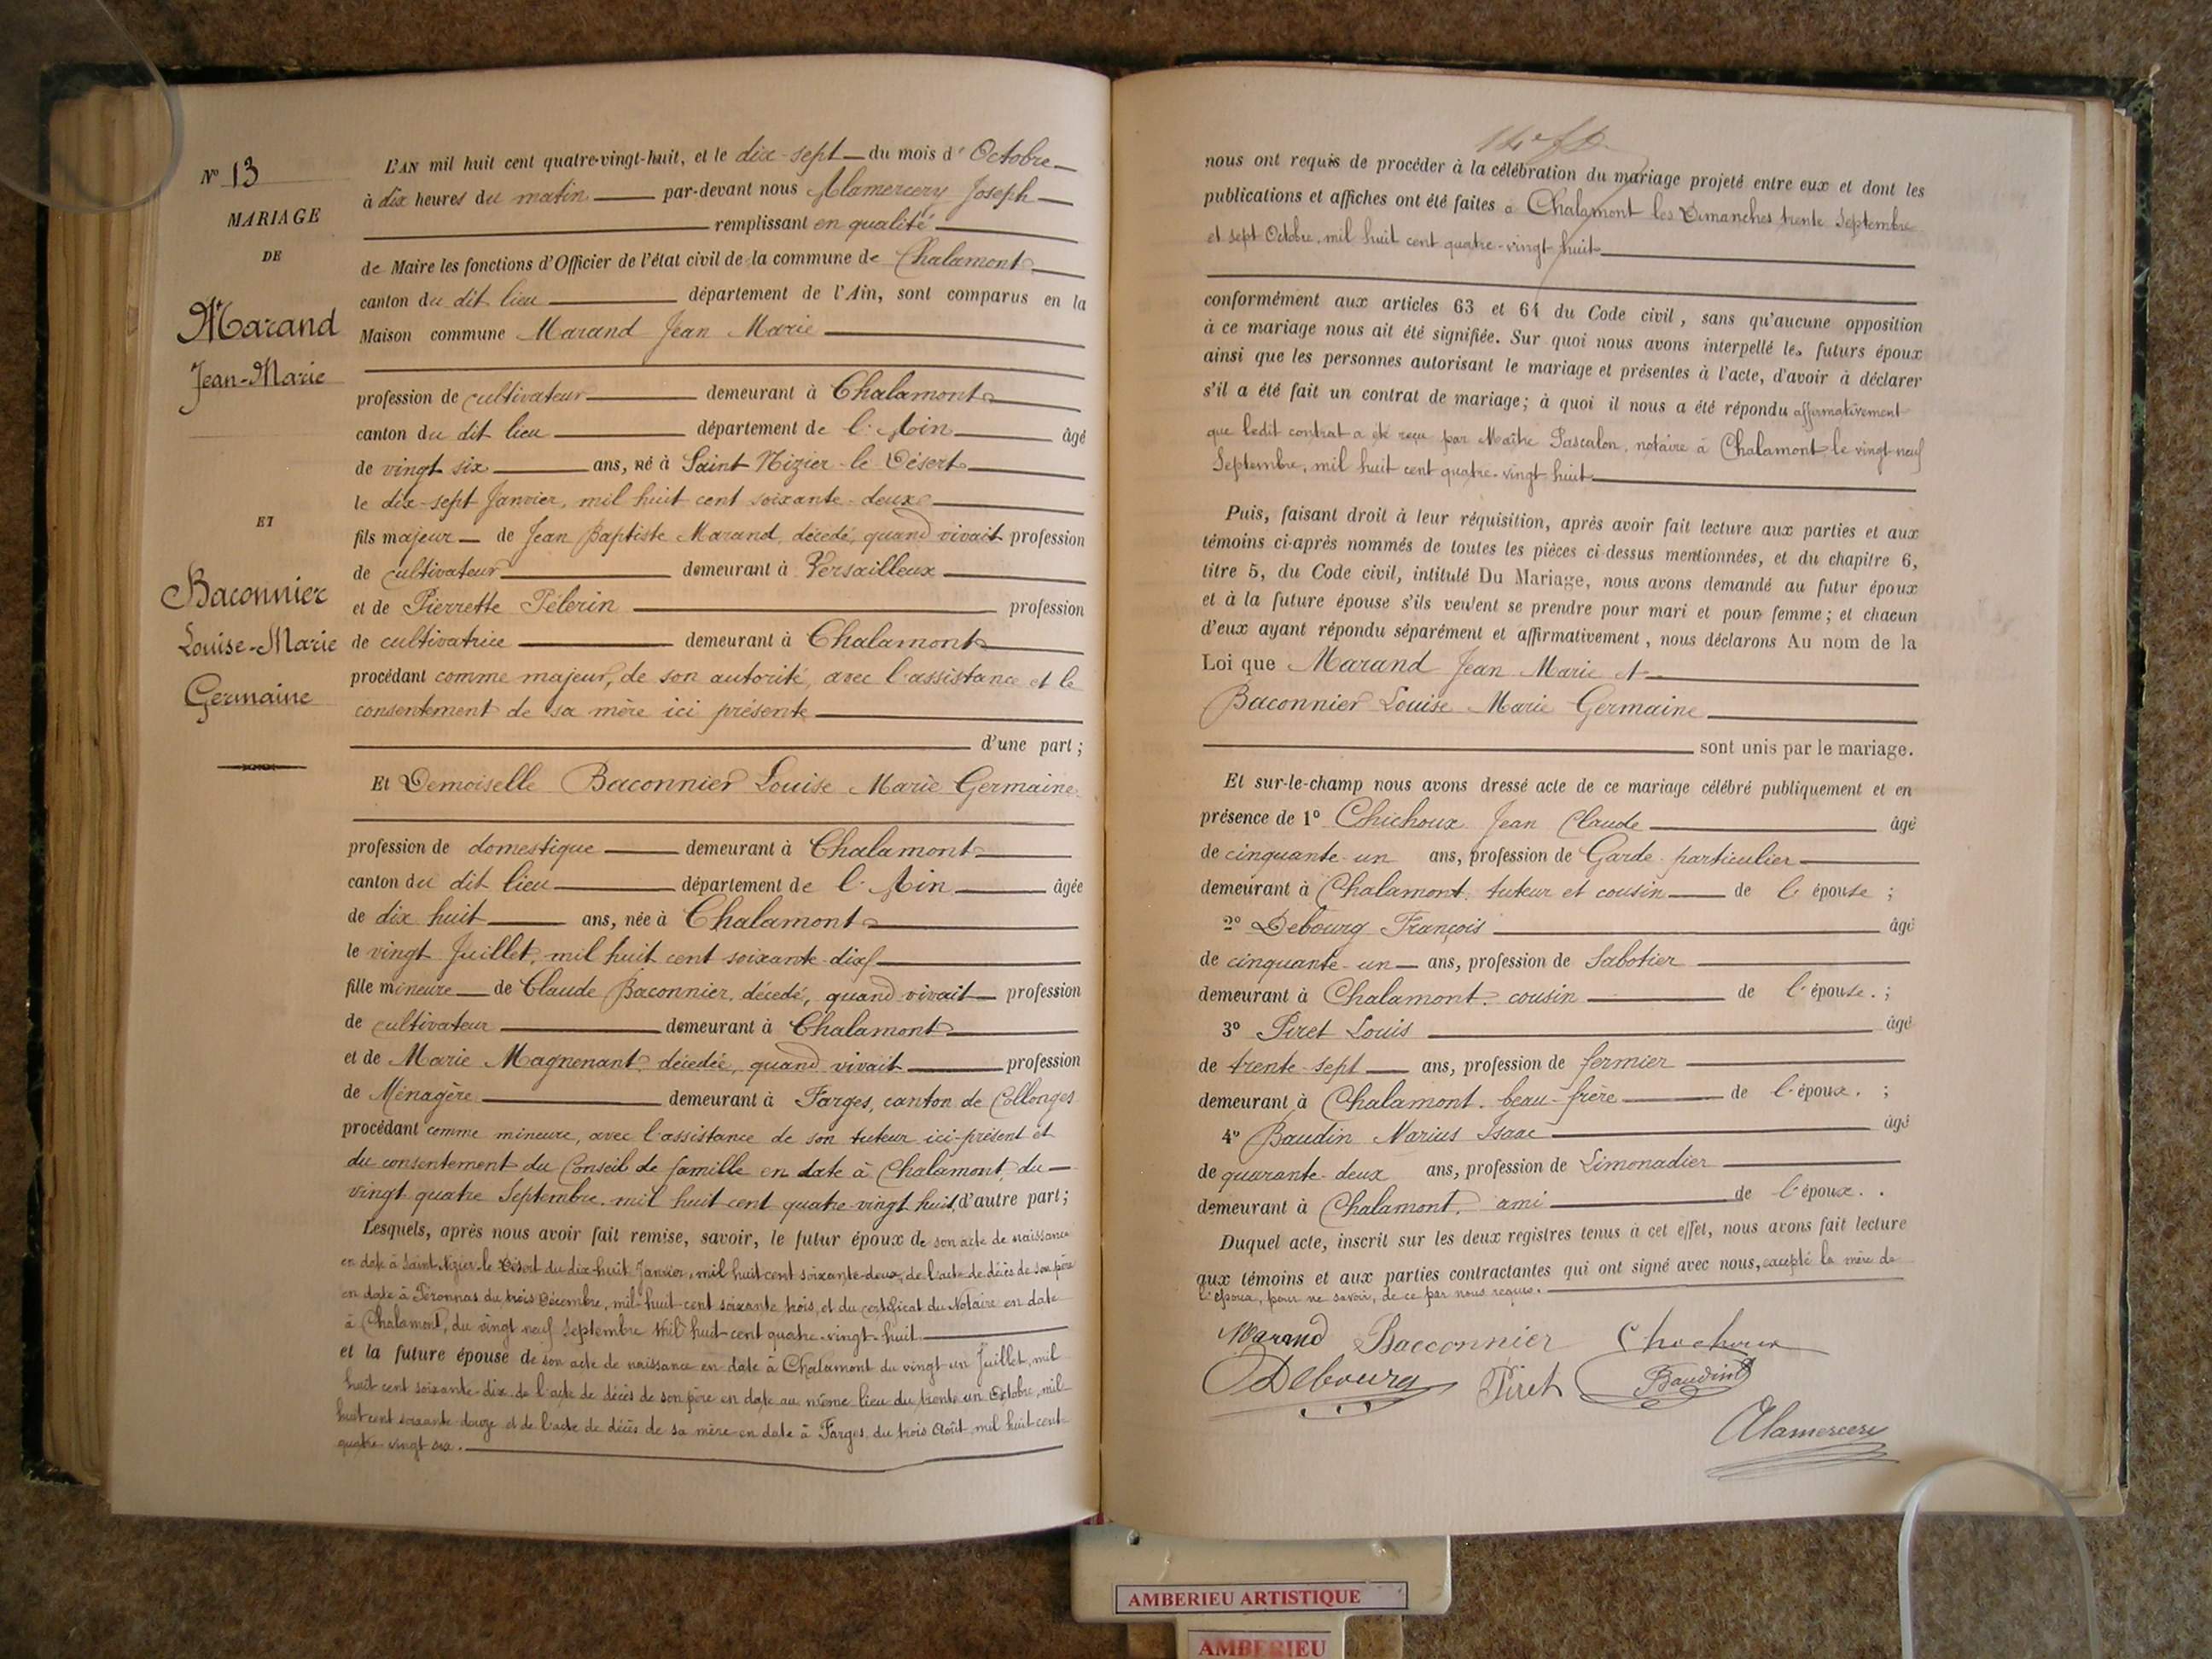 N° 13
MARIAGE
DE
Marand
Jean-Marie
ET
Baconnier
Louise-Marie
Germaine
L'AN mil huit cent quatre-vingt-huit, et le dix-sept du mois d' Octobre
à dix heures du matin par-devant nous Alamercery Joseph
remplissant en qualité
de Maire les fonctions d'Officier de l'état civil de la commune de Chalamont
canton du dit lieu département de l'Ain, sont comparus en la
Maison commune Marand Jean Marie
profession de cultivateur demeurant à Chalamont
canton du dit lieu département de l'Ain âgé
de vingt six ans, né à Saint Nizier le Désert
le dix-sept Janvier, mil huit cent soixante-deux
fils majeur de Jean Baptiste Marand, décédé, quand vivait profession
de cultivateur demeurant à Versailleux
et de Pierrette Pélerin profession
de cultivatrice demeurant à Chalamont
procédant comme majeur, de son autorité, avec l'assistance et le
consentement de sa mère ici présente
d'une part ;
Et Demoiselle Baconnier Louise Marie Germaine
profession de domestique demeurant à Chalamont
canton du dit lieu département de l'Ain âgée
de dix huit ans, née à Chalamont
le vingt Juillet, mil huit cent soixante-dix
fille mineure de Claude Baconnier, décédé, quand vivait profession
de cultivateur demeurant à Chalamont
et de Marie Magnenant, décédée, quand vivait profession
de Ménagère demeurant à Farges, canton de Collonges
procédant comme mineure, avec l'assistance de son tuteur ici-présent et
du consentement du Conseil de famille en date à Chalamont, du
vingt quatre Septembre mil huit cent quatre-vingt huit, d'autre part ;
Lesquels, après nous avoir fait remise, savoir, le futur époux de son acte de naissance
en date à Saint Nizier-le Désert du dix-huit Janvier, mil huit cent soixante-deux, de l'acte de décès de son père
en date à Péronnas du trois Décembre, mil-huit-cent soixante trois, et du certificat du Notaire en date
à Chalamont, du vingt neuf Septembre Mil huit-cent quatre-vingt-huit
et la future épouse de son acte de naissance en date à Chalamont du vingt-un Juillet, mil
huit cent soixante-dix, de l'acte de décès de son père en date au même lieu du trente un Octobre, mil
huit cent soixante douze et de l'acte de décès de sa mère en date à Farges, du trois Août, mil huit cent
quatre vingt six.
nous ont requis de procéder à la célébration du mariage projeté entre eux et dont les
publications et affiches ont été faites à Chalamont les Dimanches trente Septembre
et sept Octobre, mil huit cent quatre-vingt-huit
conformément aux articles 63 et 64 du Code civil, sans qu'aucune opposition
à ce mariage nous ait été signifiée. Sur quoi nous avons interpellé les futurs époux
ainsi que les personnes autorisant le mariage et présentes à l'acte, d'avoir à déclarer
s'il a été fait un contrat de mariage; à quoi il nous a été répondu affirmativement
que ledit contrat a été reçu par Maître Pascalon, notaire à Chalamont le vingt-neuf
Septembre, mil huit cent quatre-vingt huit
Puis, faisant droit à leur réquisition, après avoir fait lecture aux parties et aux
témoins ci-après nommés de toutes les pièces ci-dessus mentionnées, et du chapitre 6,
titre 5, du Code civil, intitulé Du Mariage, nous avons demandé au futur époux
et à la future épouse s'ils veulent se prendre pour mari et pour femme; et chacun
d'eux ayant répondu séparément et affirmativement, nous déclarons Au nom de la
Loi que Marand Jean Marie et
Baconnier Louise Marie Germaine
sont unis par le mariage.
Et sur-le-champ nous avons dressé acte de ce mariage célébré publiquement et en
présence de 1° Chichoux Jean Claude âgé
de cinquante-un ans, profession de Garde particulier
demeurant à Chalamont, tuteur et cousin de l'épouse ;
2° Debourg François âgé
de cinquante-un ans, profession de Sabotier
demeurant à Chalamont. cousin de l'épouse. ;
3° Piret Louis âgé
de trente-sept ans, profession de fermier
demeurant à Chalamont. beau-frère de l'époux. ;
4° Baudin Marius Isaac âgé
de quarante-deux ans, profession de Limonadier
demeurant à Chalamont, ami de l'époux. .
Duquel acte, inscrit sur les deux registres tenus à cet effet, nous avons fait lecture
aux témoins et aux parties contractantes qui ont signé avec nous, excepté la mère de
l'époux, pour ne savoir, de ce par nous requise.
Marand Bacconnier Chochoux
Debourg Piret Baudin
Alamercery
AMBERIEU ARTISTIQUE
AMBERIEU